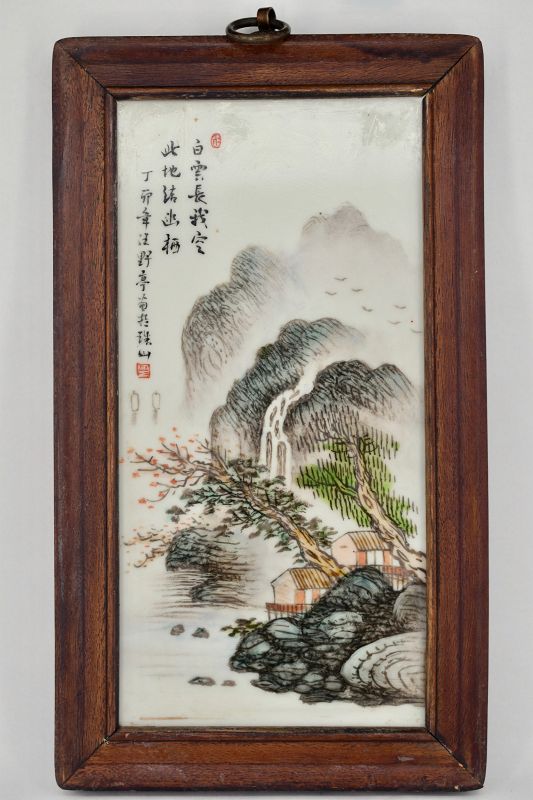 白雲長我空
此地結幽栖
丁卯年汪野亭寫於珠山